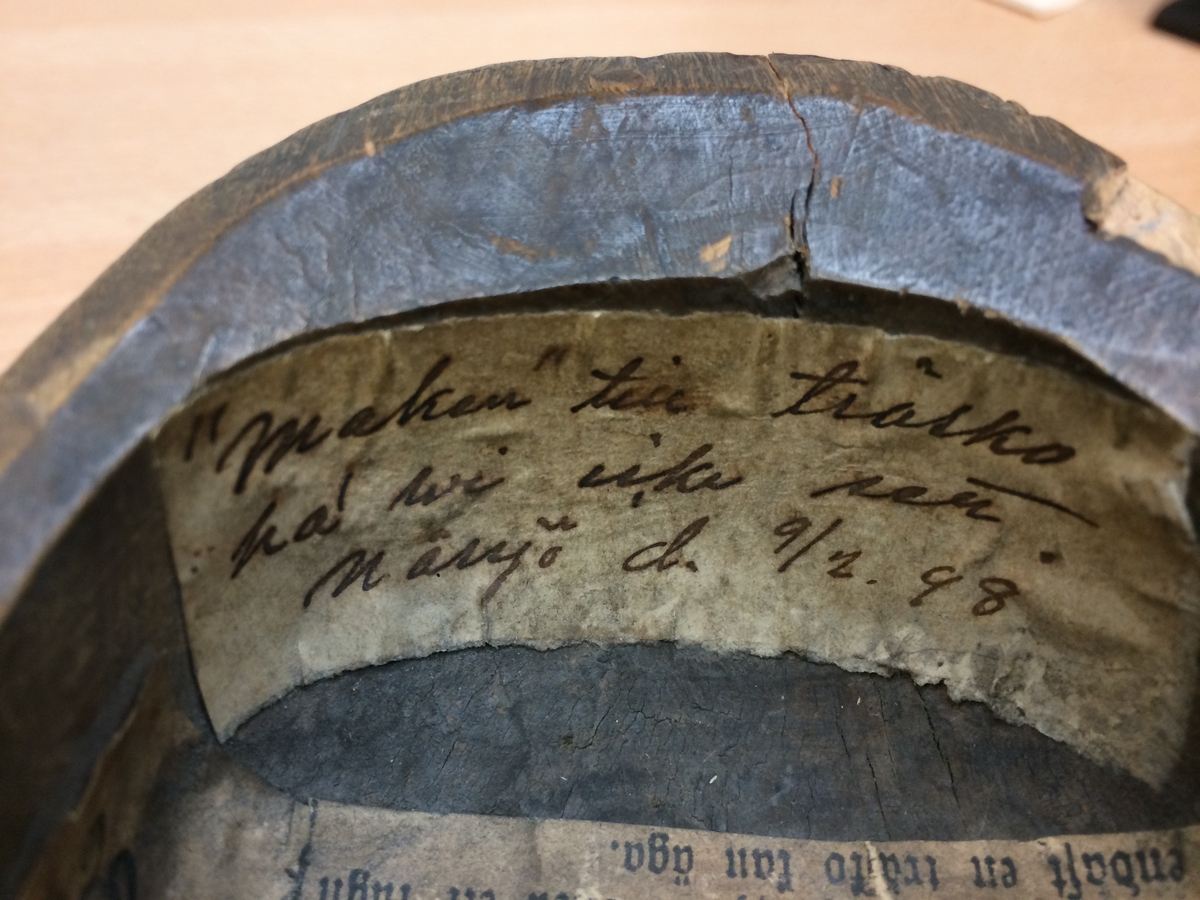 "Maken" till träsko
ha' wi icke sett
Nässjö d. 9/2. 98
endaſt en träſko kan äga.